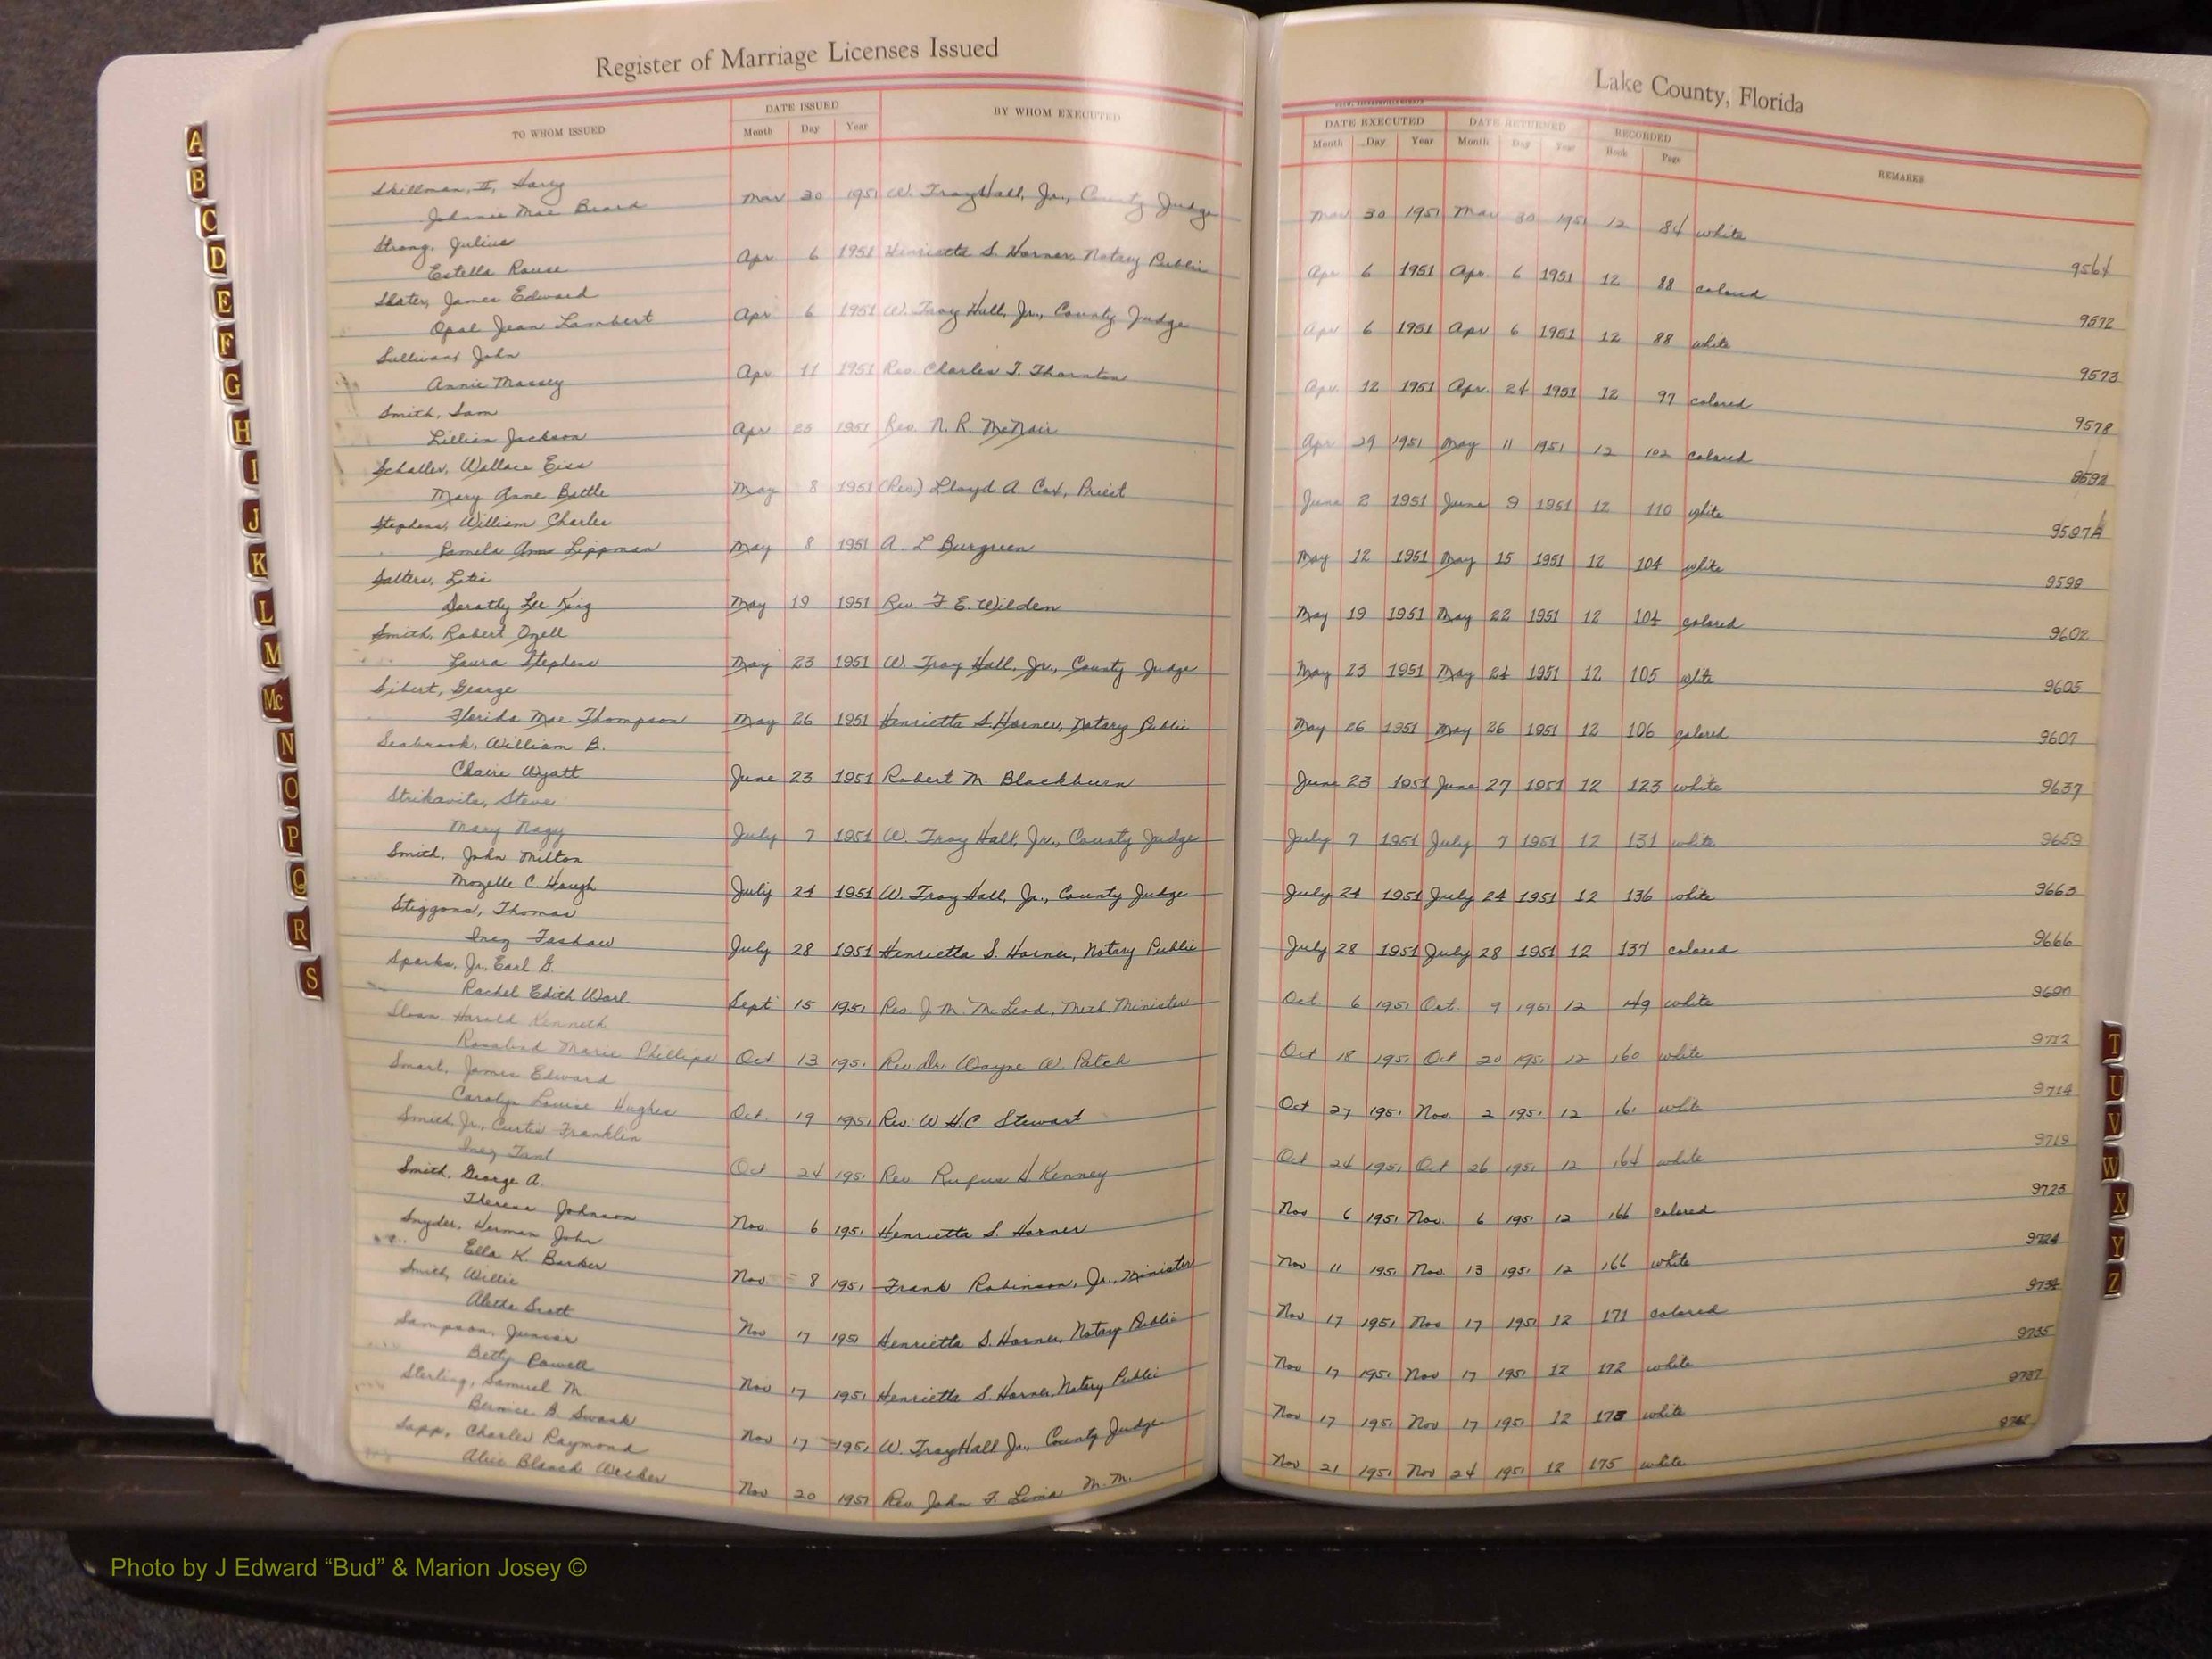 Register of Marriage Licenses Issued
Lake County, Florida
TO WHOM ISSUED
DATE ISSUED
Month Day Year
BY WHOM EXECUTED
DATE EXECUTED
Month Day Year
DATE RETURNED
Month Day Year
RECORDED
Book Page
REMARKS
Skillman, II, Harry
Johnnie Mae Beard Mar 30 1951 W. Troy Hall, Jr., County Judge Mar 30 1951 Mar 30 1951 12 84 white 9564
Strong, Julius
Estella Rouse Apr. 6 1951 Henrietta S. Horner, Notary Public Apr 6 1951 Apr. 6 1951 12 88 colored 9572
Slater, James Edward
Opal Jean Lambert Apr 6 1951 W. Troy Hall, Jr., County Judge Apr 6 1951 Apr 6 1951 12 88 white 9573
Sullivan, John
Annie Massey Apr. 11 1951 Rev. Charles T. Thornton Apr. 12 1951 Apr. 24 1951 12 97 colored 9578
Smith, Sam
Lillian Jackson Apr 23 1951 Rev. N. R. McNair Apr 29 1951 May 11 1951 12 102 colored
Schaller, Wallace Eiss
Mary Anne Battle May 8 1951 (Rev.) Lloyd A Cox, Priest June 2 1951 June 9 1951 12 110 white 9597A
Stephens, William Charles
Pamela Ann Lippman May 8 1951 A. L Burgreen May 12 1951 May 15 1951 12 104 white 9599
Salters, Lotis
Dorothy Lee King May 19 1951 Rev. F. E. Wilden May 19 1951 May 22 1951 12 104 colored 9602
Smith, Robert Ozell
Laura Stephens May 23 1951 W. Troy Hall, Jr., County Judge May 23 1951 May 24 1951 12 105 white 9605
Sibert, George
Florida Mae Thompson May 26 1951 Henrietta S. Horner, Notary Public May 26 1951 May 26 1951 12 106 colored 9607
Seabrook, William B.
Claire Wyatt June 23 1951 Robert M Blackburn June 23 1951 June 27 1951 12 123 white 9637
Strikavits, Steve
Mary Nagy July 7 1951 W. Troy Hall, Jr., County Judge July 7 1951 July 7 1951 12 131 white 9659
Smith, John Milton
Mozelle C. Haugh July 24 1951 W. Troy Hall, Jr., County Judge July 24 1951 July 24 1951 12 136 white 9663
Stiggons, Thomas
Inez Fashaw July 28 1951 Henrietta S. Horner, Notary Public July 28 1951 July 28 1951 12 137 colored 9666
Sparks, Jr., Earl G.
Rachel Edith Warl Sept 15 1951 Rev J. M. McLeod, Meth Minister Oct. 6 1951 Oct. 9 1951 12 149 white 9690
Sloan, Harold Kenneth
Rosalind Marie Phillips Oct 13 1951 Rev Dr. Wayne W. Patch Oct 18 1951 Oct 20 1951 12 160 white 9712
Smart, James Edward
Carolyn Louise Hughes Oct. 19 1951 Rev. W. H.C. Stewart Oct 27 1951 Nov. 2 1951 12 161 white 9714
Smith, Jr., Curtis Franklin
Inez Tant Oct 24 1951 Rev Rufus H. Kenney Oct 24 1951 Oct 26 1951 12 164 white 9719
Smith, George A.
Theresa Johnson Nov 6 1951 Henrietta S. Horner Nov 6 1951 Nov. 6 1951 12 166 colored 9723
Snyder, Herman John
Ella K. Barker Nov 8 1951 Frank Robinson, Jr., Minister Nov 11 1951 Nov. 13 1951 12 166 white 9724
Smith, Willie
Aletha Scott Nov 17 1951 Henrietta S. Horner, Notary Public Nov 17 1951 Nov 17 1951 12 171 colored 9734
Sampson, Junior
Betty Powell Nov 17 1951 Henrietta S. Horner, Notary Public Nov 17 1951 Nov 17 1951 12 172 white 9735
Sterling, Samuel M.
Bernice B. Swank Nov 17 1951 W. Troy Hall Jr., County Judge Nov 17 1951 Nov 17 1951 12 173 white 9737
Sapp, Charles Raymond
Alice Blanch Welker Nov 20 1951 Rev. John F. Livia M.M. Nov 21 1951 Nov 24 1951 12 175 white
A
B
C
D
E
F
G
H
I
J
K
L
M
Mc
N
O
P
Q
R
S
T
U
V
W
X
Y
Z
Photo by J Edward “Bud” & Marion Josey ©